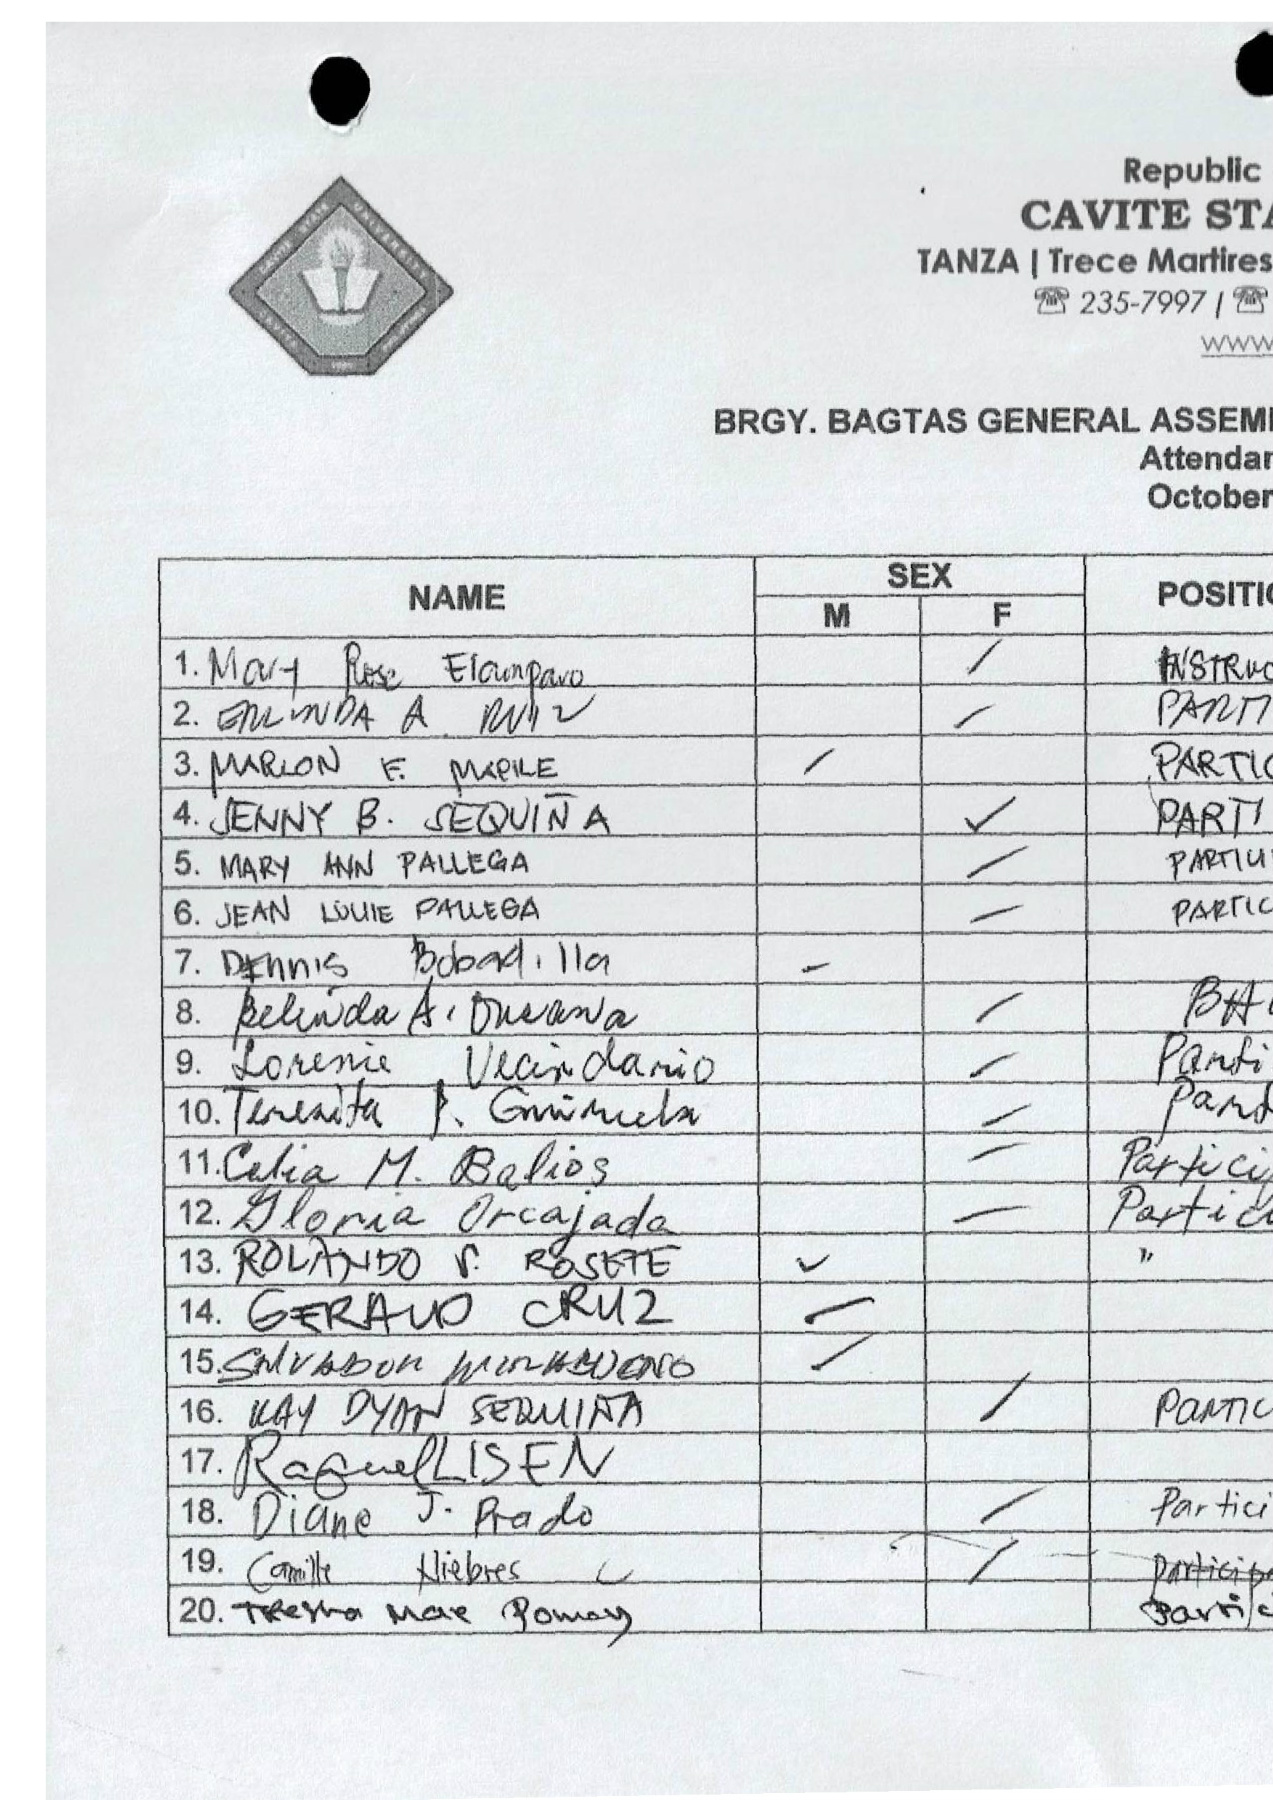 CAVITE STATE UNIVERSITY
Republic
CAVITE STA
TANZA | Trece Martires
☎ 235-7997 / ☎
www
BRGY. BAGTAS GENERAL ASSEM
Attendan
October
NAME SEX POSITIO
M F
1. Mary Rose Elampavo / INSTRUC
2. ERLINDA A. RUIZ / PARTI
3. MARLON F. MAPILE / PARTIC
4. JENNY B. SEQUIÑA ✓ PARTI
5. MARY ANN PALLEGA / PARTICI
6. JEAN LOUIE PALLEGA / PARTIC
7. DENNIS Bobadilla /
8. Belinda A. / BA
9. Lorenie Vecindario / Parti
10. Teresita P. / Part
11. Celia M. Balios / Partici
12. Gloria Orcajada / Partic
13. ROLANDO ROSETE ✓ "
14. GERALD CRUZ /
15. SALVADOR /
16. KAY DYAN SEQUIÑA / PARTIC
17. Raquel LISEN
18. Diane J. Prado / Partici
19. Camille Niebres / Participa
20. Mae Partic